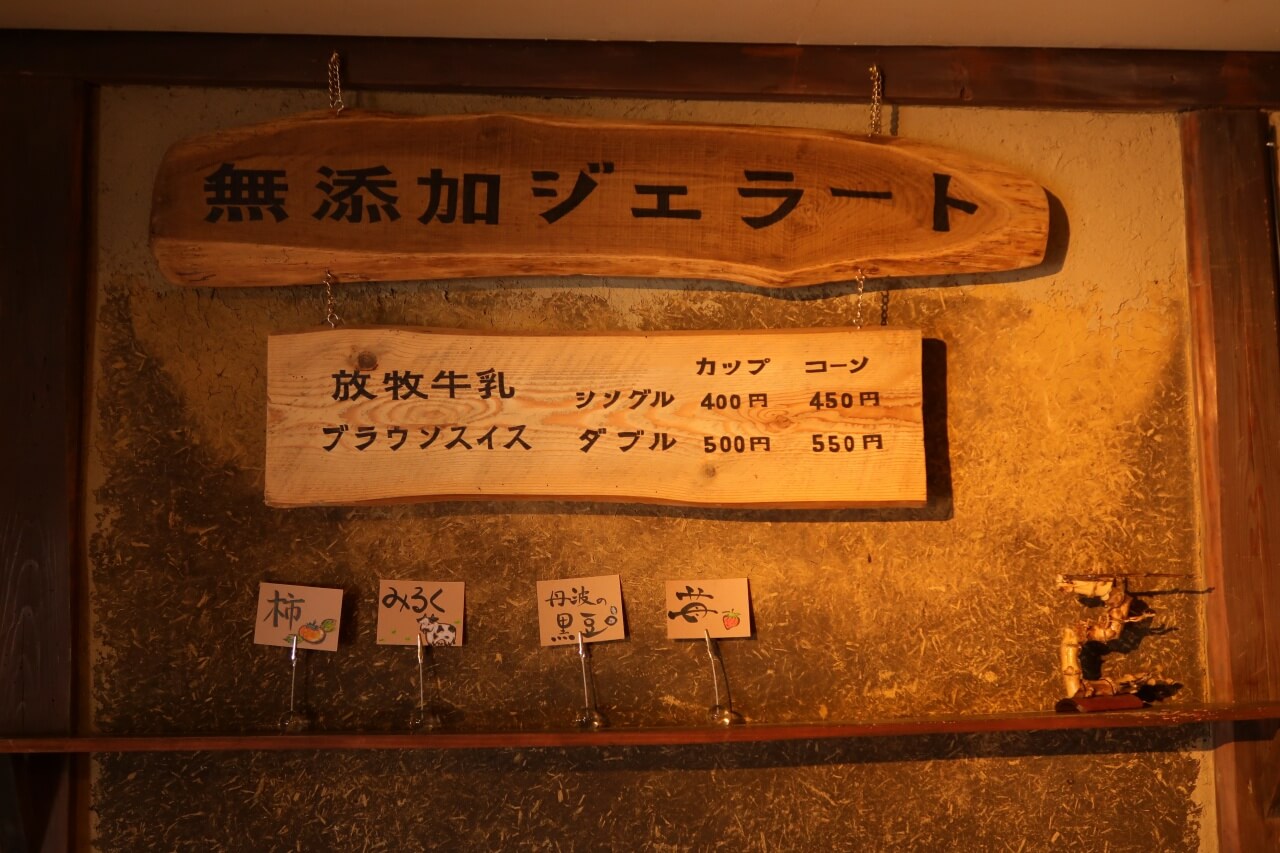 無添加ジェラート
カップ コーン
放牧牛乳 シングル 400円 450円
ブラウンスイス ダブル 500円 550円
柿
みるく
丹波の
黒豆
苺